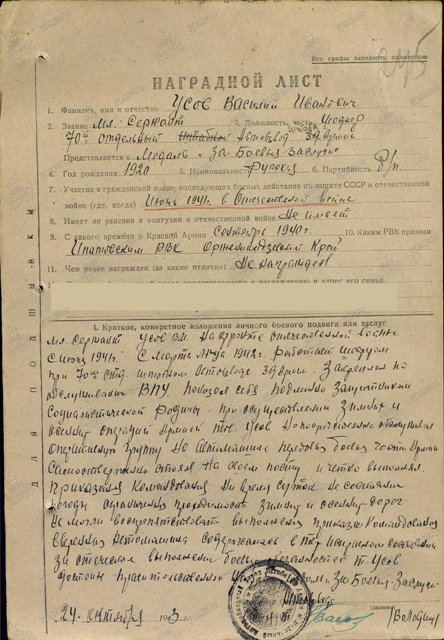 Все графы заполнять полностью
НАГРАДНОЙ ЛИСТ
1. Фамилия, имя и отчество Усов Василий Иванович
2. Звание мл. Сержант 3. Должность, часть Шофер
70го отдельный Штабной Автовзвод 3й Армии
Представляется к Медаль "За Боевые Заслуги"
4. Год рождения 1920 5. Национальность Русский 6. Партийность б/п.
7. Участие в гражданской войне, последующих боевых действиях по защите СССР и отечественной
войне (где, когда) Июнь 1941г. в Отечественной войне
8. Имеет ли ранения и контузии в отечественной войне Не имеет
9. С какого времени в Красной Армии Сентябрь 1940г. 10. Каким РВК призван
Ипатовским РВК Орженикидзевский Край
11. Чем ранее награжден (за какие отличия) Не награжден
ДЛЯ ПОДШИВКИ
I. Краткое, конкретное изложение личного боевого подвига или заслуг
мл. сержант Усов В.И. на фронте отечественной войны
с июня 1941г. С Марта 1942г. Работает шофером
при 70м отд штабном автовзводе 3й Армии. Закреплен по
обслуживанию ВПУ показал себя подлинно защитником
Социалистической Родины. При осуществлении Зимних и
осенних операций Армией тов Усов непосредственно обслуживал
Оперативную группу на автомашине передовых боевых частей Армии
стоял на своем посту и четко выполнял
Приказания Командования Ни время суток ни состояние
погоды ограниченная проходимость Зимних и осенних дорог
не могли воспрепятствовать выполнению приказа командования
вверенная автомашина содержалась в тех исправном состоянии
За отличное выполнение боевых обязанностей т. Усов
достоин правительственной награды За Боевые Заслуги
24 октября 1943г.
Володин